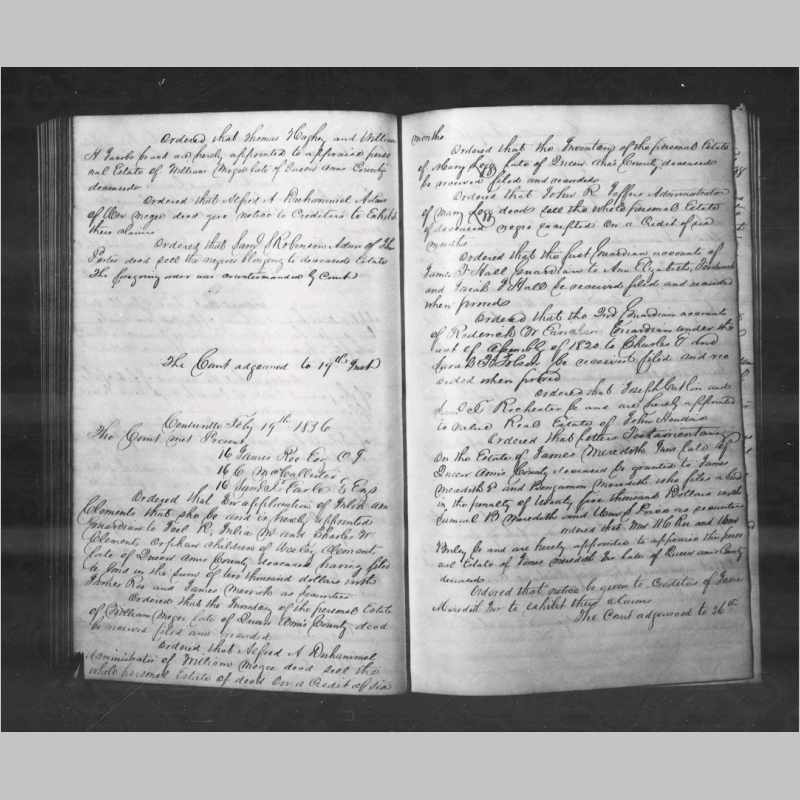 Ordered that Thomas Hughey and William
H Jacobs be and are hereby appointed to appraise perso
nal Estate of William Megee late of Queen Anns County
deceased
Ordered that Alfred A Duhammel Admr
of Wm Megee decd give notice to Creditors to Exhibit
their claims
Ordered that Saml J Robinson Admr of
Porter decd sell the negroes belonging to deceaseds Estate
The foregoing order was countermanded by Court
The Court adgourned to 19th Inst
Centreville Feby 19th 1836
The Court met Present
16 James Roe Esq C J
16 C McCallister
16 Saml T Earle Esqs
Ordered that on application of Julia Ann
Clements that she be and is hereby appointed
guardian to Joel R, Julia M and Charles W
Clements orphan children of Wesley Clements
late of Queen Anns County deceased having filed
a bond in the sum of two thousand dollars with
James Roe and James Merrick as securities
Ordered that the Inventory of the personal Estate
of William Megee late of Queen Anns County decd
be received filed and recorded
Ordered that Alfred A Duhammel
Administrator of William Megee decd sell the
whole personal Estate of decd on a Credit of six
months
Ordered that the Inventory of the personal Estate
of Mary Legg late of Queen Anns County deceased
be received filed and recorded
Ordered that John R Administrator
of Mary Legg decd sell the whole personal Estate
of deceased negroes excepted on a Credit of six
months
Ordered that the first Guardian accounts of
James T Hall guardian to Ann Elizabeth,
and Sarah J Hall be received filed and recorded
when proved
Ordered that the 2nd Guardian account
of Roderick W Guardian under the
act of assembly of 1820 to Charles T and
Sarah be received filed and rec
orded when proved
Ordered that Joseph and
Rochester be and are hereby appointed
to value Real Estate of John
Ordered that letters Testamentary
on the Estate of James Meredith Junr late of
Queen Anns County deceased be granted to James
Meredith and Benjamin Meredith who filed a bond
in the penalty of twenty five thousand Dollars with
Samuel B Meredith and Price as securities
Ordered that Wm H and
be and are hereby appointed to appraise the person
al Estate of James Meredith Jnr late of Queen Anns County
deceased
Ordered that notice be given to Creditors of James
Meredith Jnr to exhibit their claims
The Court adgourned to 26th